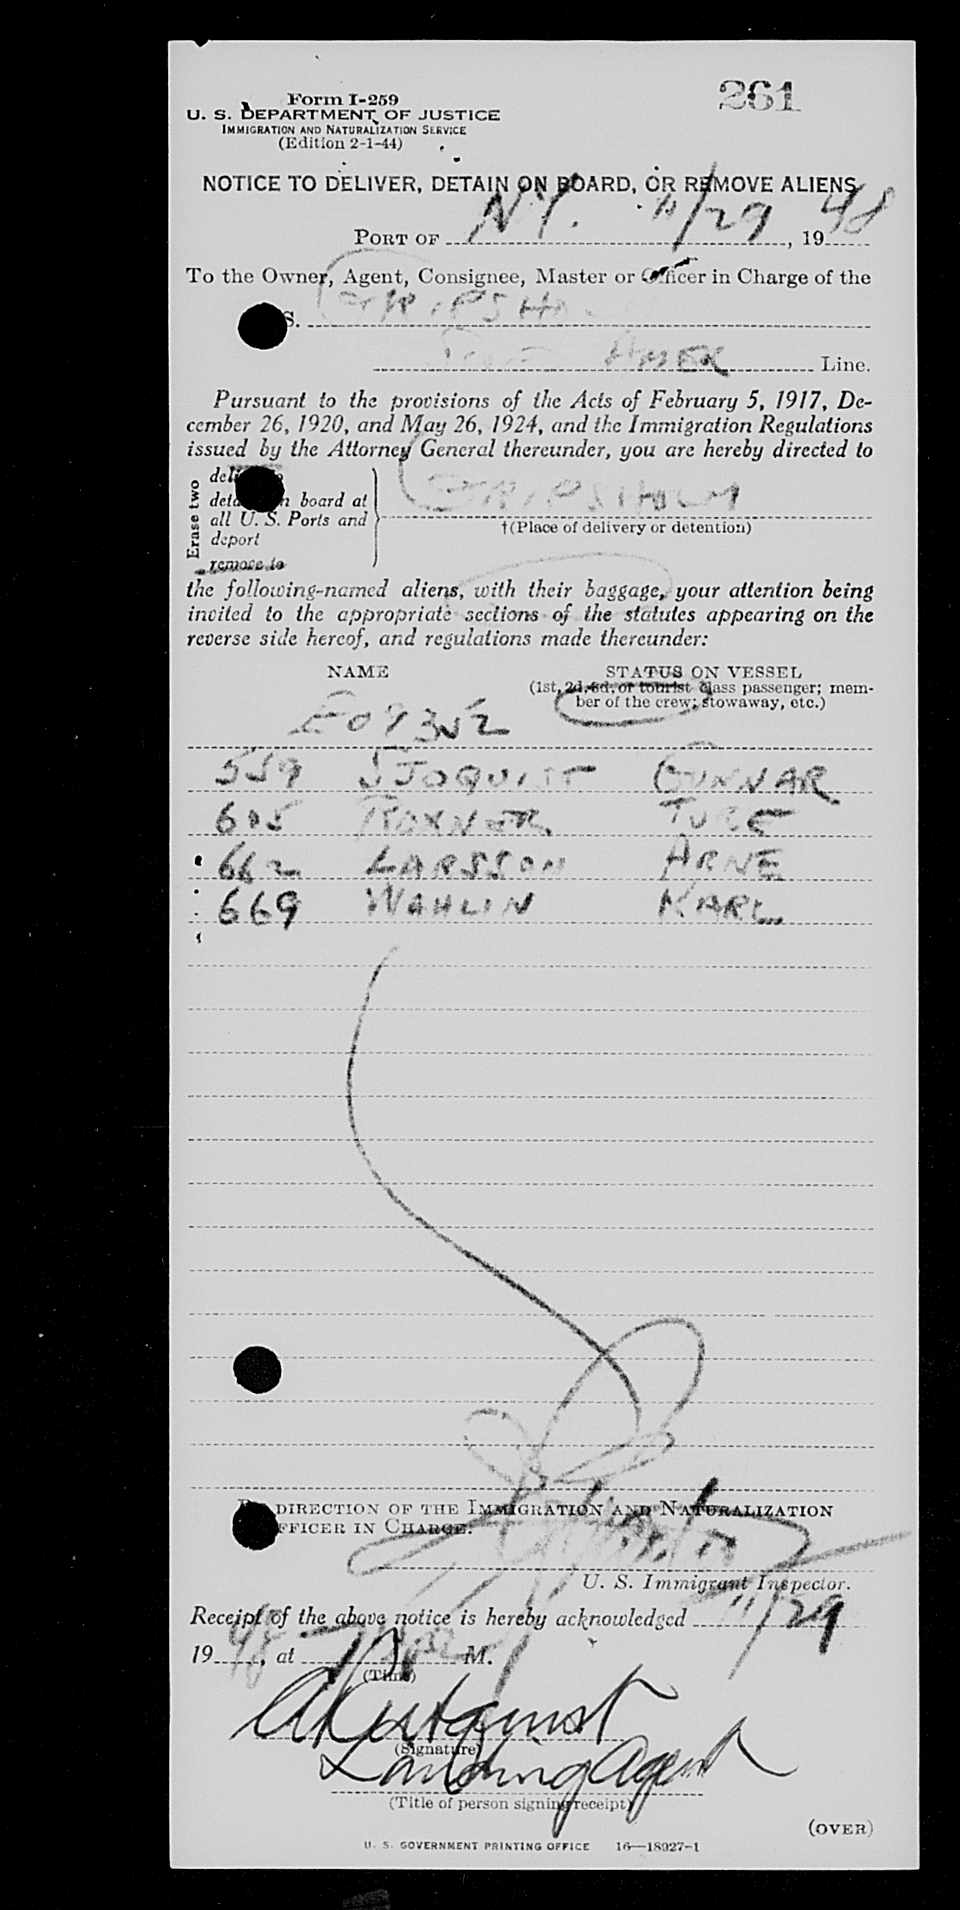 Form I-259
261
U. S. DEPARTMENT OF JUSTICE
IMMIGRATION AND NATURALIZATION SERVICE
(Edition 2-1-44)
NOTICE TO DELIVER, DETAIN ON BOARD, OR REMOVE ALIENS
PORT OF N.Y. 11/29, 1948
To the Owner, Agent, Consignee, Master or Officer in Charge of the
S. GRIPSHO
AMER Line.
Pursuant to the provisions of the Acts of February 5, 1917, De-
cember 26, 1920, and May 26, 1924, and the Immigration Regulations
issued by the Attorney General thereunder, you are hereby directed to
Erase two
detain on board at
all U. S. Ports and
deport
remove to
GRIPSHOLM
†(Place of delivery or detention)
the following-named aliens, with their baggage, your attention being
invited to the appropriate sections of the statutes appearing on the
reverse side hereof, and regulations made thereunder:
NAME
STATUS ON VESSEL
(1st, 2d, 3d, or tourist class passenger; mem-
ber of the crew; stowaway, etc.)
559 SJOQUIST GUNNAR
605 ROXNER TURE
662 LARSSON ARNE
669 WAHLIN KARL
DIRECTION OF THE IMMIGRATION AND NATURALIZATION
OFFICER IN CHARGE.
U. S. Immigrant Inspector.
Receipt of the above notice is hereby acknowledged 11/29
1948, at M.
(Time)
(Signature)
Landing Agent
(Title of person signing receipt)
(OVER)
U. S. GOVERNMENT PRINTING OFFICE 16—18927-1